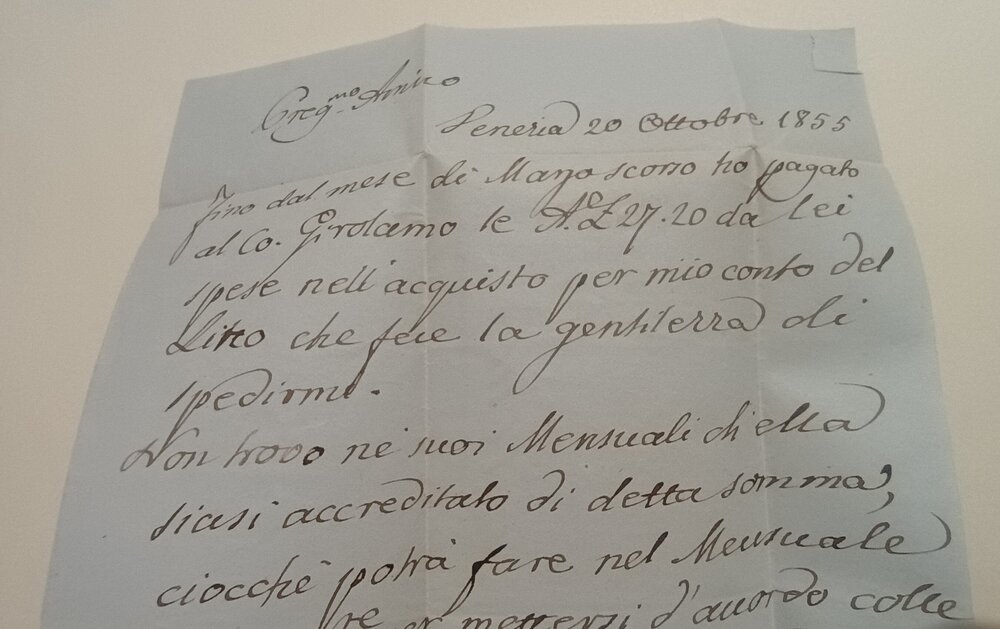 Greg.mo Amico
Venezia 20 Ottobre 1855
Fino dal mese di Marzo scorso ho pagato
al Co. Girolamo le A.L 27.20 da lei
spese nell'acquisto per mio conto del
che fece la gentilezza di
spedirmi.
Non trovo ne' suoi Mensuali ch'ella
siasi accreditato di detta somma,
ciocchè potrà fare nel Mensuale
mettersi d'accordo colle